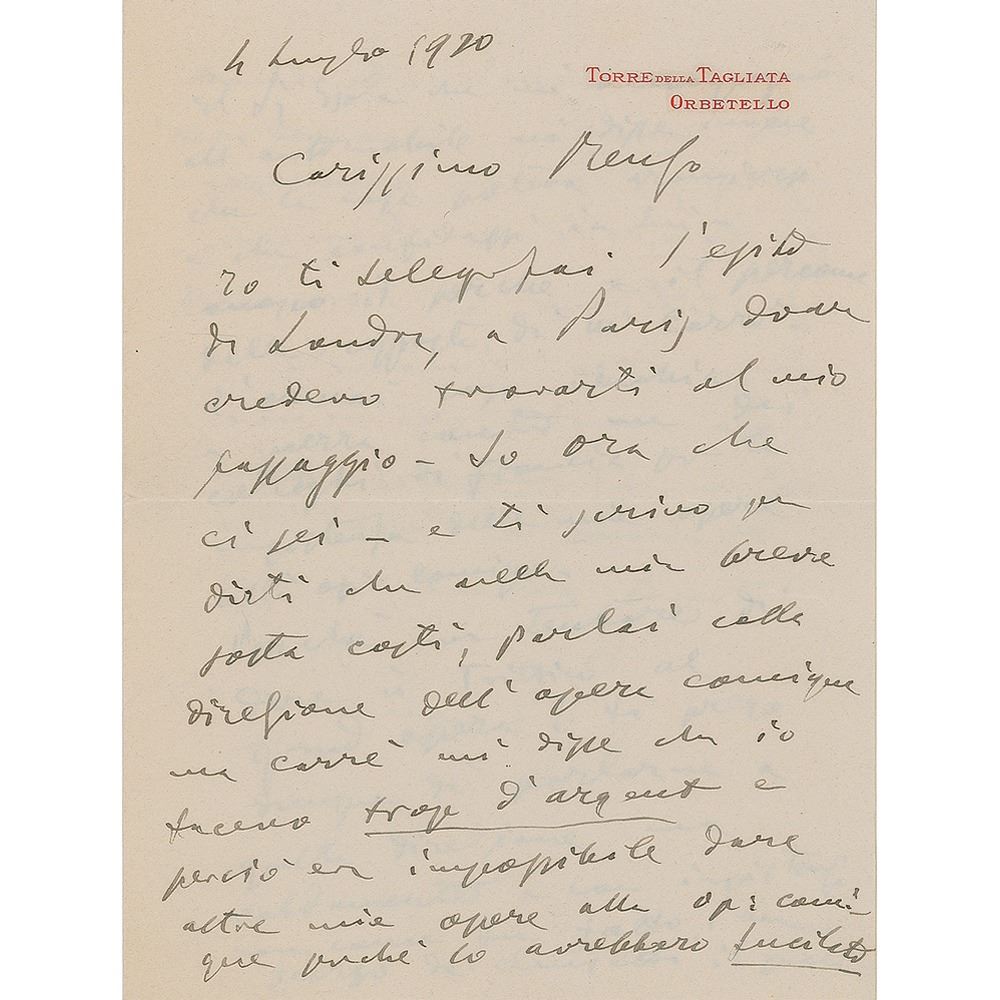 4 Luglio 1920
TORRE DELLA TAGLIATA
ORBETELLO
Carissimo Renzo
Io ti telegrafai l'esito
di Londra, a Parigi dove
credevo trovarti al mio
passaggio - So ora che
ci sei - e ti scrivo per
dirti che nella mia breve
sosta costì, parlai colla
direzione dell' opera comique
ma carrè mi disse che io
facevo trop d'argent e
perciò era impossibile dare
altre mie opere alla op: comi-
que perchè lo avrebbero fucilato